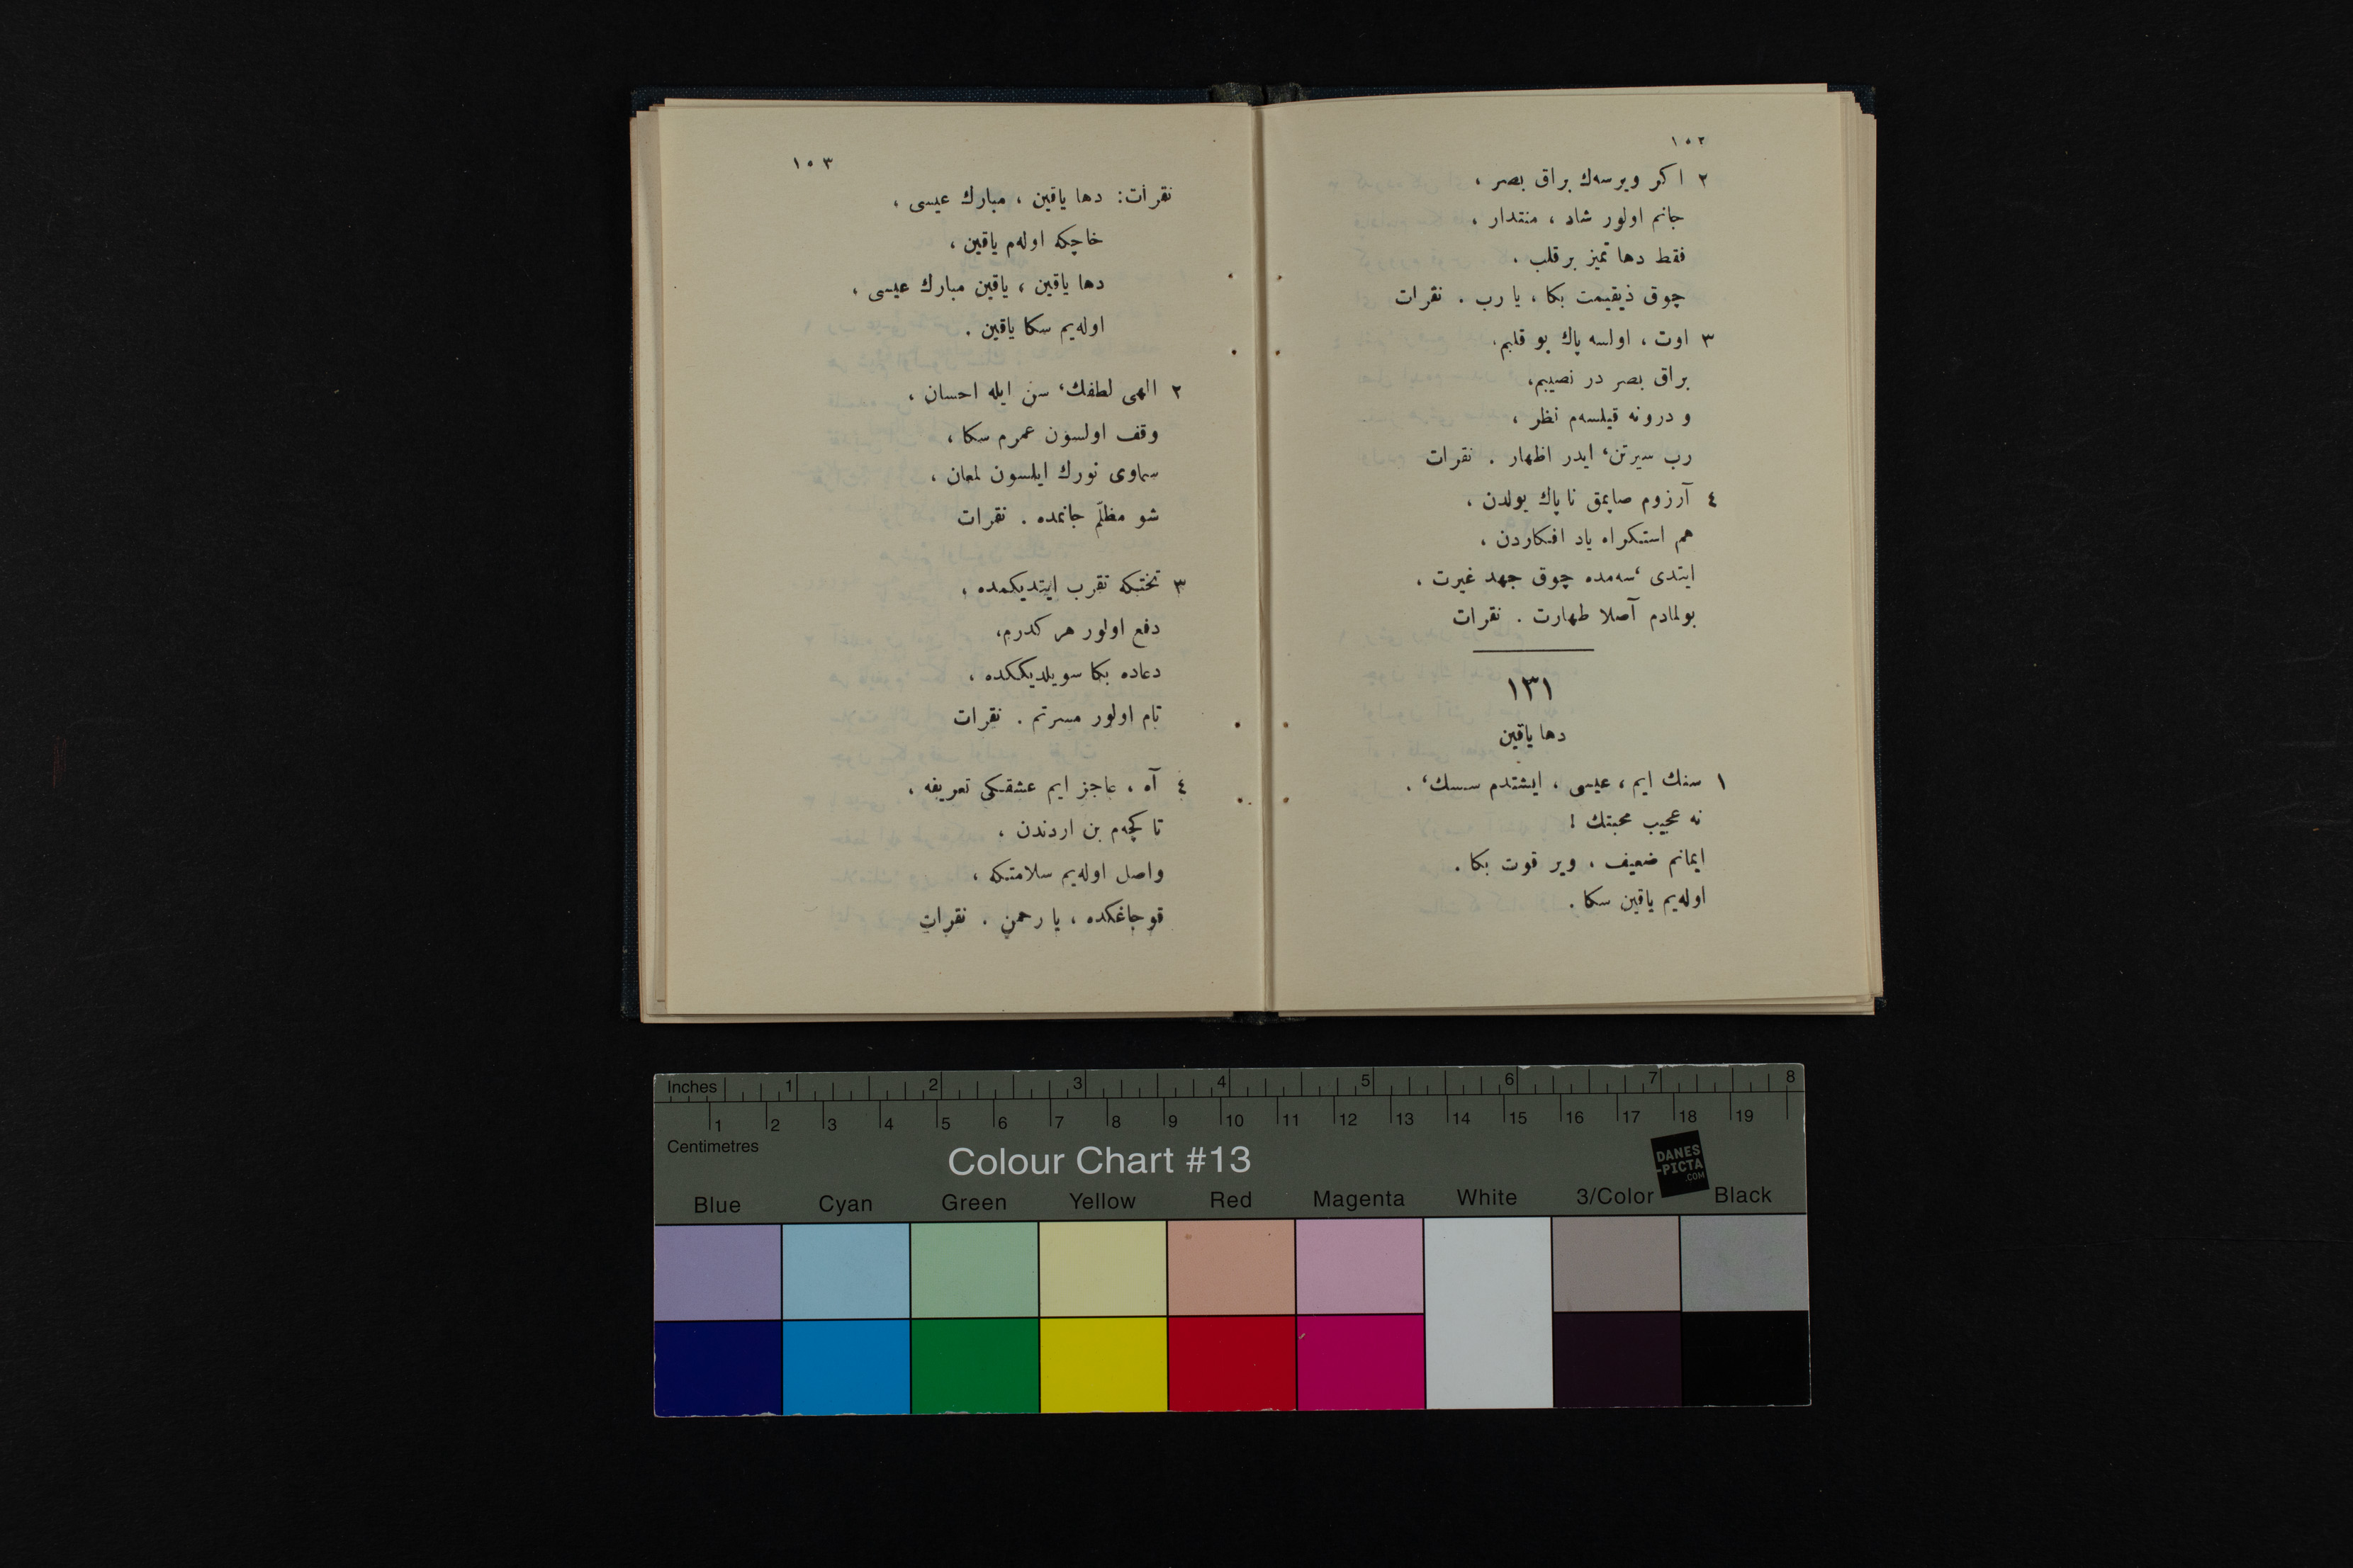 ١٥٢
٢ اكر ویرسه‌ك براق بصر ،
جانم اولور شاد ، منتدار ،
فقط دها تمیز برقلب .
چوق ذیقیمت بكا ، یا رب . نقرات
٣ اوت ، اولسه پاك بو قلبم،
براق بصر در نصیبم،
و درونه قیلسه‌م نظر ،
رب سیرتن، ایدر اظهار . نقرات
٤ آرزوم صاپمق ناپاك یولدن ،
هم استكراه یاد افكاردن ،
ایتدی ،سه‌مده چوق جهد غیرت ،
بولمادم آصلا طهارت . نقرات
١٣١
دها یاقین
١ سنك ایم ، عیسی ، ایشتدم سسك، .
نه عجیب محبتك !
ایمانم ضعیف ، ویر قوت بكا .
اوله‌یم یاقین سكا .
١٥٣
نقرات: دها یاقین ، مبارك عیسی ،
خاچكه اوله‌م یاقین ،
دها یاقین ، یاقین مبارك عیسی ،
اوله‌یم سكا یاقین .
٢ الهی لطفك، سن ایله احسان ،
وقف اولسون عمرم سكا ،
سماوی نورك ایلسون لمعان ،
شو مظلّم جانمده . نقرات
٣ تختكه تقرب ایتدیكمده ،
دفع اولور هر كدرم،
دعاده بكا سویلدیككده ،
تام اولور مسرتم . نقرات
٤ آه ، عاجز ایم عشقكی تعریفه ،
تا كچه‌م بن اردندن ،
واصل اوله‌یم سلامتكه ،
قوجاغكده ، یا رحمن . نقرات
Inches 1 2 3 4 5 6 7 8
1 2 3 4 5 6 7 8 9 10 11 12 13 14 15 16 17 18 19
Centimetres
Colour Chart #13
DANES
-PICTA
.COM
Blue Cyan Green Yellow Red Magenta White 3/Color Black